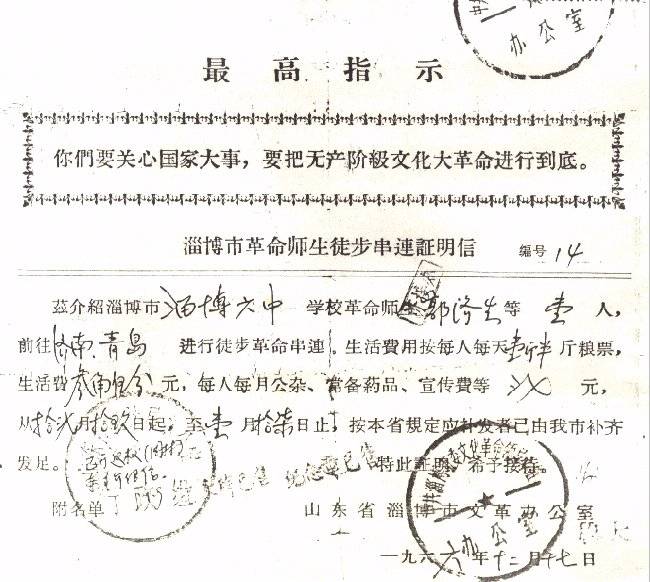 办公室
最高指示
你們要关心国家大事，要把无产阶級文化大革命进行到底。
淄博市革命师生徒步串連証明信 編号 14
茲介紹淄博市 淄博六中 学校革命师生 郭济生 等 壹 人，
前往 济南、青岛 进行徒步革命串連。生活費用按每人每天 壹斤半 斤粮票，
生活費 叁角 元，每人每月公杂、常备药品、宣传費等 元，
从 拾 月 拾 日起，至 壹 月 拾柒 日止，按本省規定应补发者已由我市补齐
发足。 紀念章已售 特此証明，希予接待。
附名单 山东省淄博市文革办公室
办公室
一九六六年十二月十七日